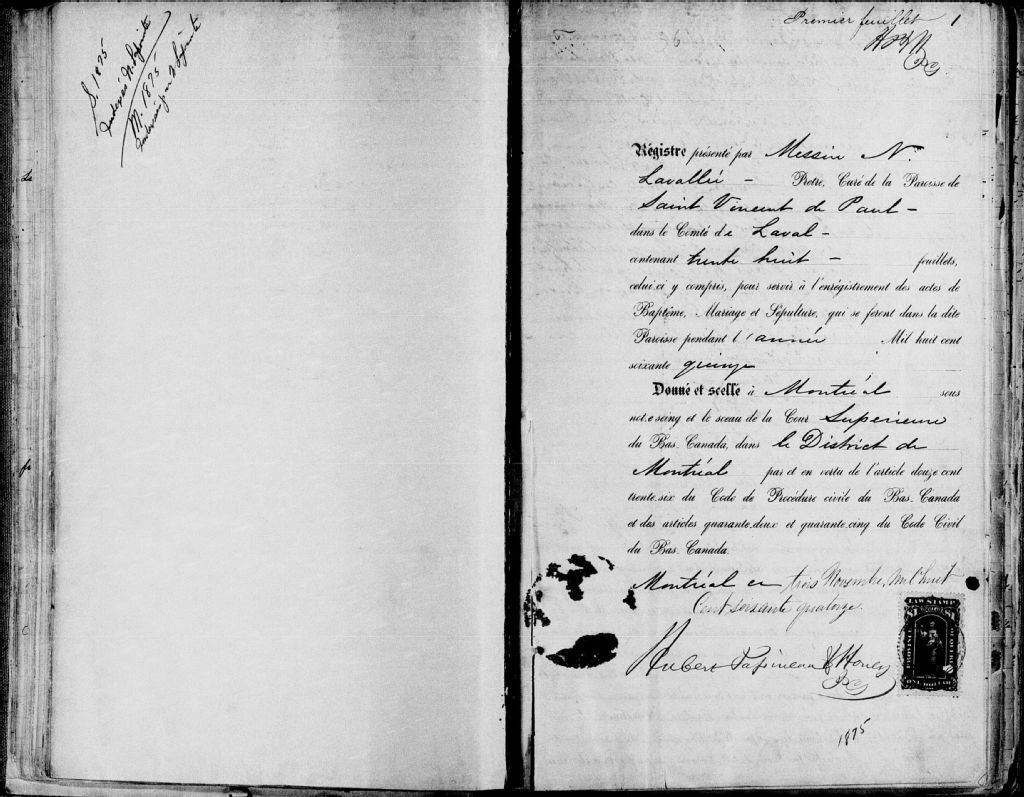 S. 1875
M. 1875
Premier feuillet 1
Régistre présenté par Messire N.
Lavallée – Prêtre, Curé de la Paroisse de
Saint Vincent de Paul –
dans le Comté de Laval –
contenant trente huit – feuillets,
celui.ci y compris, pour servir à l'enrégistrement des actes de
Baptême, Mariage et Sépulture, qui se feront dans la dite
Paroisse pendant l'année Mil huit cent
soixante quinze
Donné et scellé à Montréal sous
not.e seing et le sceau de la Cour Superieure
du Bas. Canada, dans le District de
Montréal par et en vertu de l'article douze cent
trente.six du Code de Procédure civile du Bas-Canada
et des articles quarante.deux et quarante.cinq du Code Civil
du Bas Canada.
Montréal ce trois Novembre, mil huit
Cent soixante quatorze.
Hubert Papineau & Honey
LAW STAMP
$1 $1
ONE DOLLAR
1875